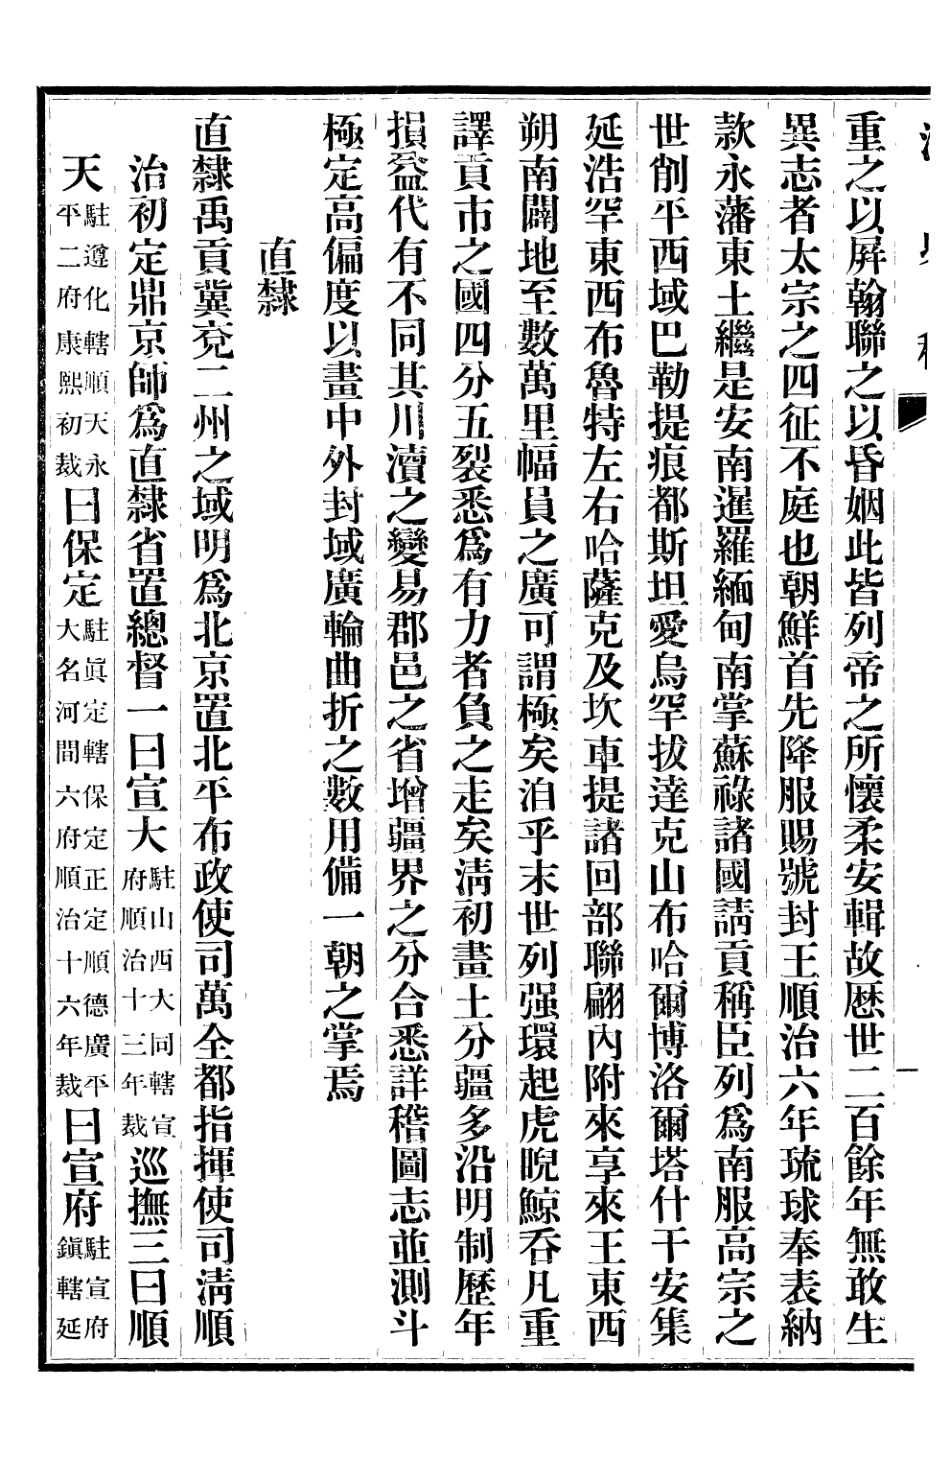 重之以屛翰聯之以昏姻此皆列帝之所懷柔安輯故厯世二百餘年無敢生
異志者太宗之四征不庭也朝鮮首先降服賜號封王順治六年琉球奉表納
款永藩東土繼是安南暹羅緬甸南掌蘇祿諸國請貢稱臣列爲南服高宗之
世削平西域巴勒提痕都斯坦愛烏罕拔達克山布哈爾博洛爾塔什干安集
延浩罕東西布魯特左右哈薩克及坎車提諸回部聯翩內附來享來王東西
朔南闢地至數萬里幅員之廣可謂極矣洎乎末世列强環起虎睨鯨吞凡重
譯貢市之國四分五裂悉爲有力者負之走矣淸初畫土分疆多沿明制歷年
損益代有不同其川瀆之變易郡邑之省增疆界之分合悉詳稽圖志並測斗
極定高偏度以畫中外封域廣輪曲折之數用備一朝之掌焉
直隸
直隸禹貢冀兗二州之域明爲北京置北平布政使司萬全都指揮使司淸順
治初定鼎京師爲直隸省置總督一曰宣大駐山西大同轄宣府順治十三年裁巡撫三曰順
天駐遵化轄順天永平二府康熙初裁曰保定駐眞定轄保定正定順德廣平大名河間六府順治十六年裁曰宣府駐宣府鎭轄延